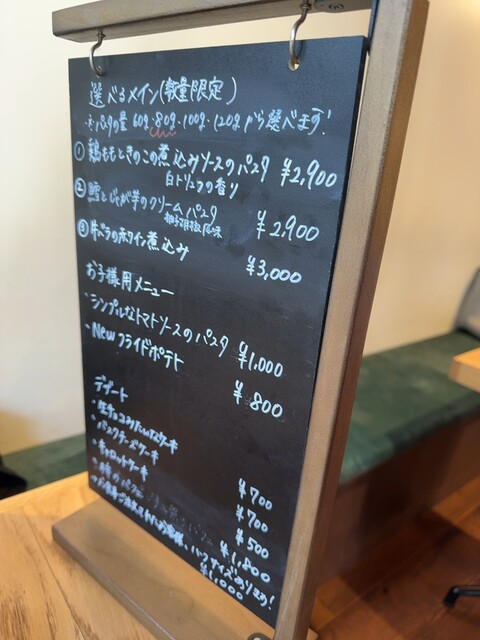 選べるメイン(数量限定)
パスタの量 60g・80g・100g・120gから選べます!
① 鶏ももときのこの煮込みソースのパスタ ¥2,900
白トリュフの香り
② 鱈とじゃが芋のクリームパスタ ¥2,900
柚子胡椒風味
③ 牛バラの赤ワイン煮込み ¥3,000
お子様用メニュー
・シンプルなトマトソースのパスタ ¥1,000
・Newフライドポテト ¥800
デザート
・生チョコみたいなケーキ ¥700
・バスクチーズケーキ ¥700
・キャロットケーキ ¥500
パフェ ¥1,800
ハーフサイズあります!
¥1,000